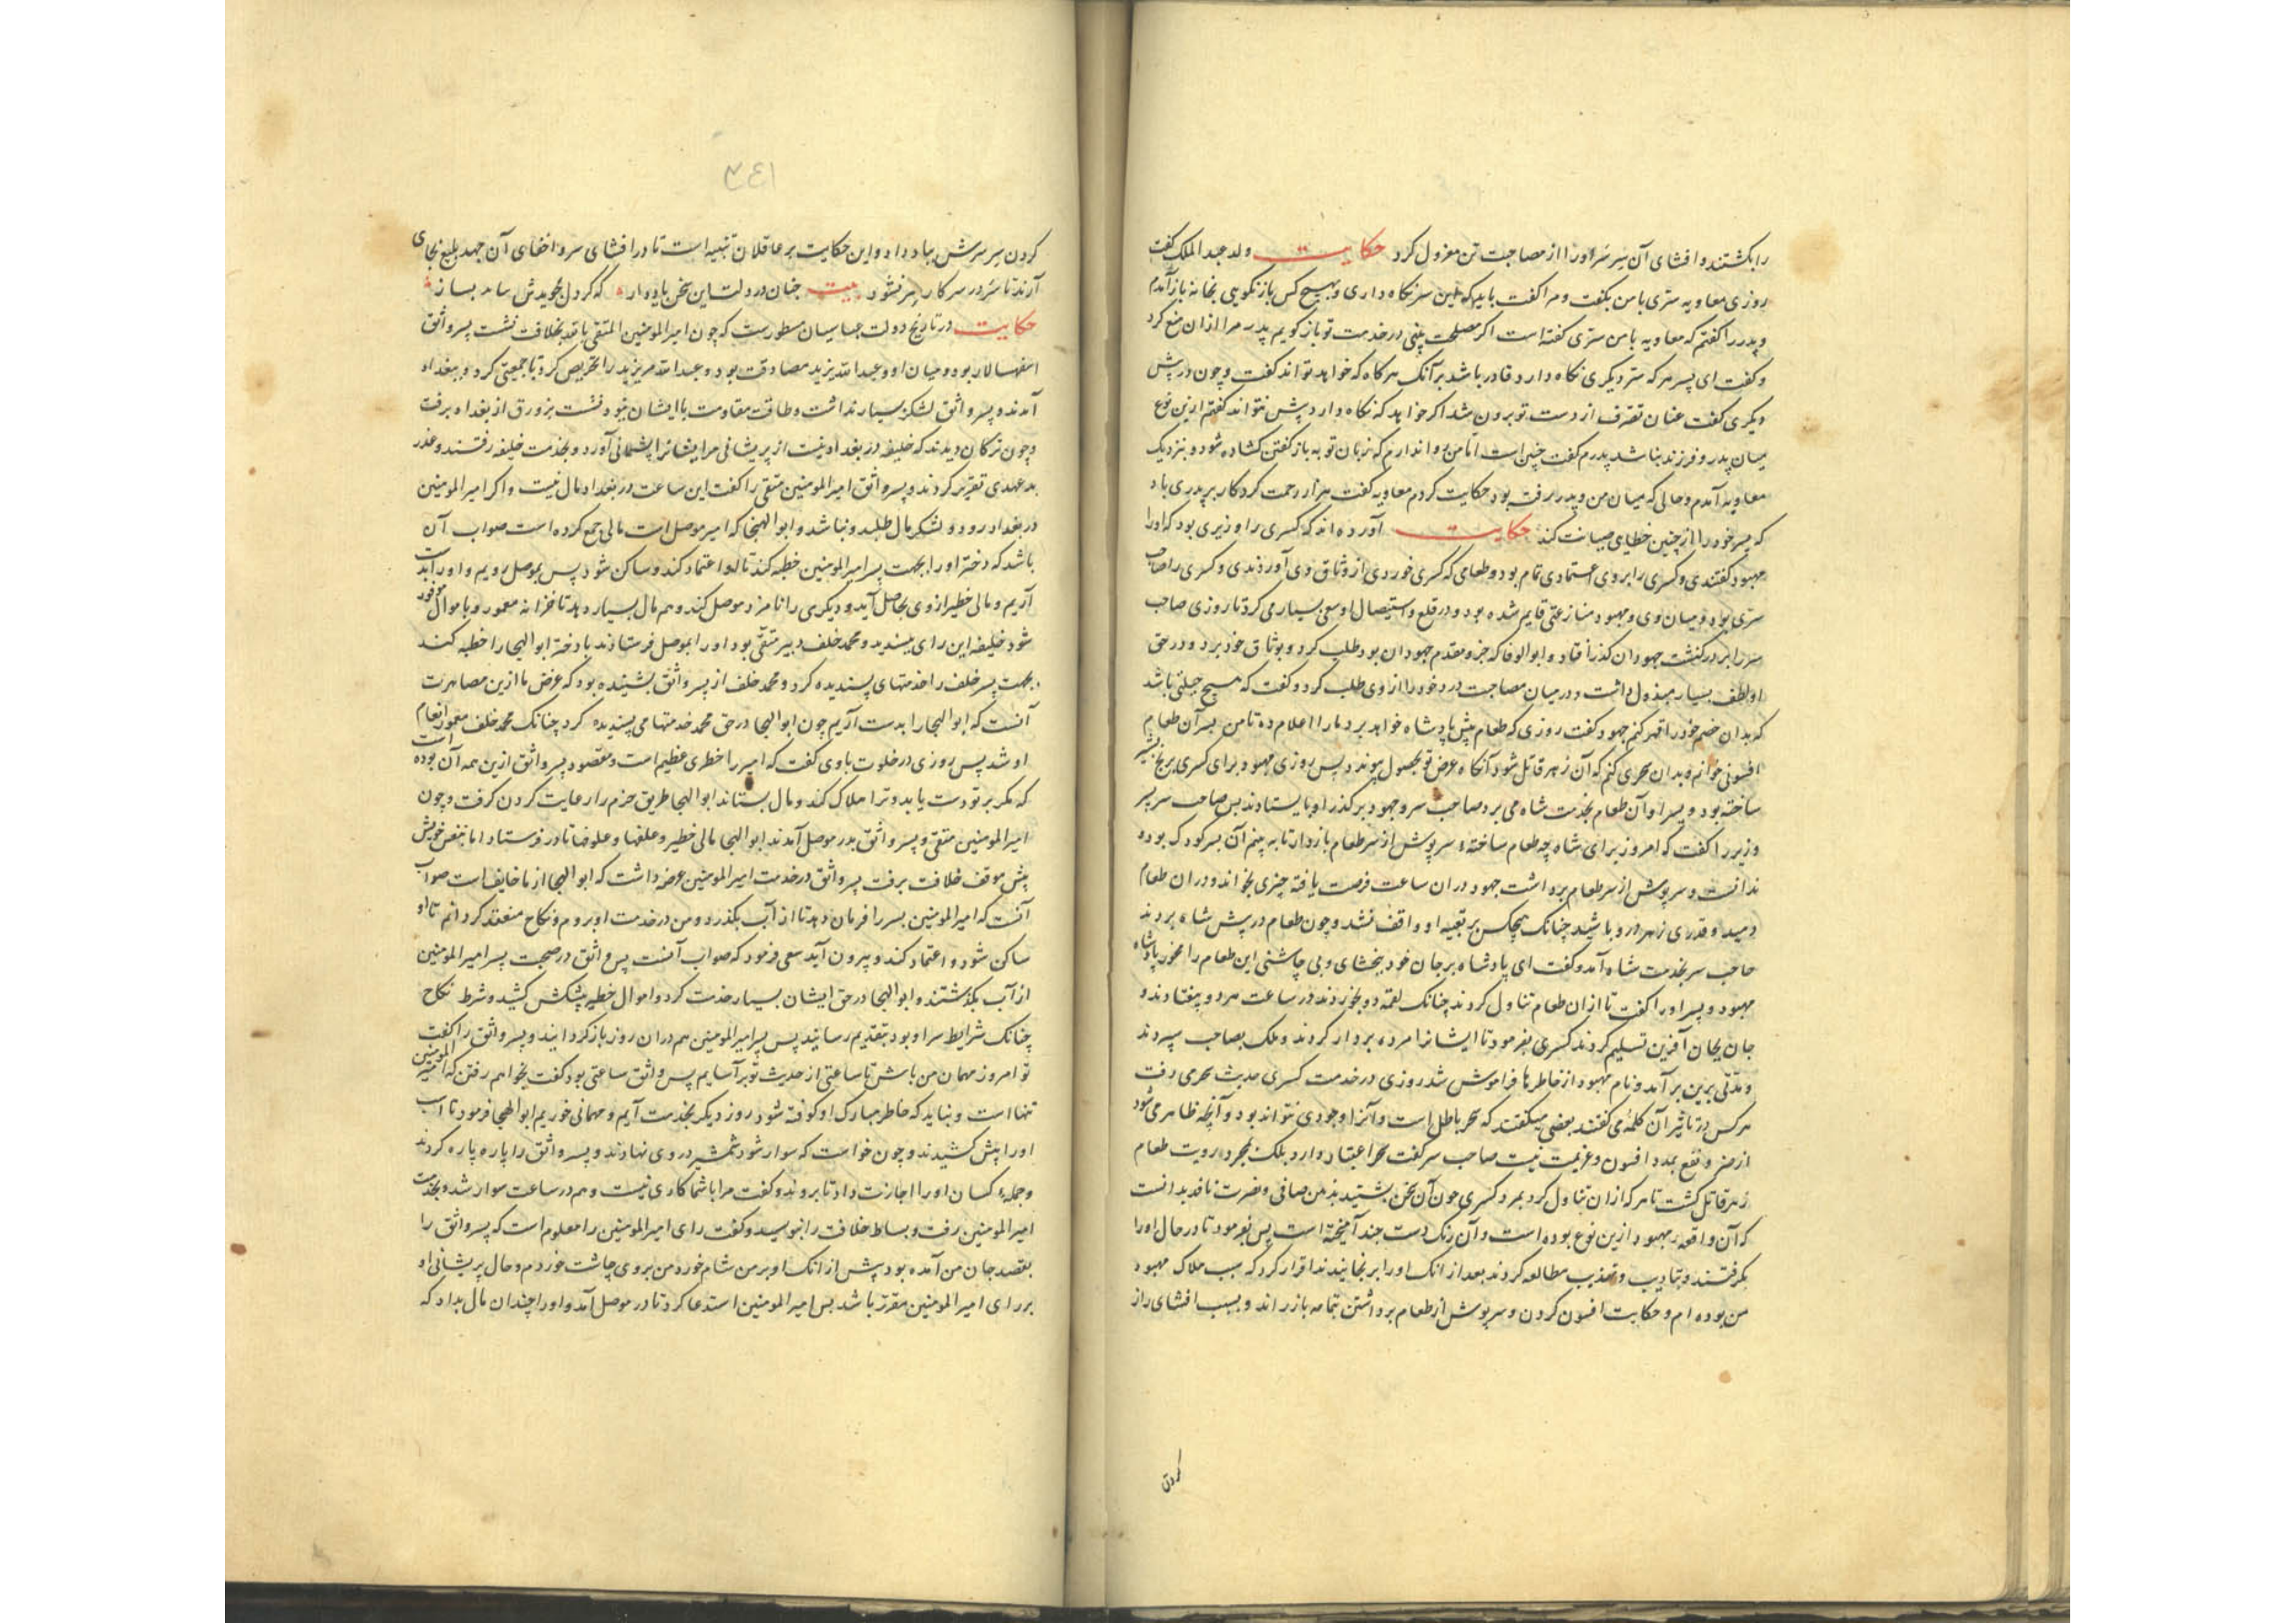 را بکشتند و افشای آن سر سر او را از مصاحبت تن معزول کرد حکایت ولد عبد الملک گفت
روزی معاویه سری با من بگفت و مرا گفت باید که این سر نگاه داری و بهیچ کس باز نگویی بخانه باز آمدم
و پدر را گفتم که معاویه با من سری گفته است اگر مصلحت بینی در خدمت تو باز گویم پدر مرا از ان منع کرد
و گفت ای پسر هر که سر دیگری نگاه دارد قادر باشد بر آنک هر کاه که خواهد تواند گفت و چون در پیش
دیگری گفت عنان تصرف از دست تو برون شد اگر خواهد که نگاه دارد پیش نتواند گفتم ازین نوع
میان پدر و فرزند نباشد پدرم گفت چنین است اما من روا ندارم که زبان تو به باز گفتن گشاده شود و بنزدیک
معاویه آمدم و حالی که میان من و پدر برفت بود حکایت کردم معاویه گفت هزار رحمت کردگار بر پدری باد
که پسر خود را از چنین خطای صیانت کند حکایت آورده اند که کسری را وزیری بود که او را
مهبود گفتندی و کسری را بر وی اعتمادی تمام بود و طعامی که کسری خوردی از وثاق وی آوردندی و کسری را صاحب
سری بود و میان وی و مهبود منازعتی قایم شده بود و در قلع و استیصال او سعی بسیار می کرد تا روزی صاحب
سر را بر در کنشت جهودان گذر افتاد و ابو الوفا که حبر و مقدم جهودان بود طلب کرد و بوثاق خود برد و در حق
او لطف بسیار مبذول داشت و در میان مصاحبت درد خود را از وی طلب کرد و گفت که هیچ حیلتی باشد
که بدان خصم خود را قهر کنم جهود گفت روزی که طعام پیش پادشاه خواهد برد مارا اعلام ده تا من بر آن طعام
افسونی خوانم و بدان سحری کنم که آن زهر قاتل شود آنگاه غرض تو بحصول پیوندد پس روزی مهبود برای کسری برنج بشیر
ساخته بود و پسر او آن طعام بخدمت شاه می برد صاحب سر و جهود بر گذر او بایستادند پس صاحب سر پسر
وزیر را گفت که امروز برای شاه چه طعام ساخته سرپوش از سر طعام باز دار تا به بینم آن پسر کودک بوده
ندانست و سرپوش از سر طعام برداشت جهود در ان ساعت فرصت یافته چیزی بخواند و در ان طعام
دمید و قدری زهر درو باشید چنانک هیچکس بر تعبیه او واقف نشد و چون طعام در پیش شاه بردند
صاحب سر بخدمت شاه آمد و گفت ای پادشاه بر جان خود ببخشای و بی چاشنی این طعام را مخور پادشاه
مهبود و پسر او را گفت تا از ان طعام تناول کردند چنانک لقمه دو بخوردند در ساعت هر دو بیفتادند و
جان بجان آفرین تسلیم کردند کسری بفرمود تا ایشانرا مرده بر دار کردند و ملک بصاحب سپردند
و مدتی برین بر آمد و نام مهبود از خاطرها فراموش شد روزی در خدمت کسری حدیث سحر می رفت
هر کس در تاثیر آن کلمه می گفتند بعضی میگفتند که سحر باطل است و آنرا وجودی نتواند بود و آنچه ظاهر می شود
از ضر و نفع بمدد افسون و عزیمت نیست صاحب سر گفت سحر اعتبار دارد بلک بمجرد رویت طعام
زهر قاتل گشت تا هر که از ان تناول کرد بمرد کسری چون آن سخن بشنید بذهن صافی و بصیرت نافذ بدانست
که آن واقعه مهبود ازین نوع بوده است و آن رنگ دست جند آمیخته است پس بفرمود تا در حال او را
بگرفتند و بتادیب و تعذیب مطالعه کردند بعد از انک او را برنجانیدند اقرار کرد که سبب هلاک مهبود
من بوده ام و حکایت افسون کردن و سرپوش از طعام برداشتن بتمامه باز راند و بسبب افشای راز
کردن
٣٤١
کردن سر سرش بباد داد و این حکایت بر عاقلان تنبیه است تا در افشای سر و اخفای آن جهد بلیغ بجای
آرند تا سر در سر کار سر نشود بیت چنان در دلت این سخن یاد دار که گر دل بجویدش باز
حکایت در تاریخ دولت عباسیان مسطورست که چون امیر المومنین المتقی بالله بخلافت نشست پسر واثق
اسفهسالار بود و میان او و عبد الله یزید مصادقت بود و عبد الله مر یزید را تحریص کرد تا جمعیتی کرد و ببغداد
آمدند و پسر واثق لشکر بسیار نداشت و طاقت مقاومت با ایشان نبود بنشست بزورق از بغداد برفت
و چون ترکان دیدند که خلیفه در بغداد نیست از پریشانی مر ایشانرا پشیمانی آورد و بخدمت خلیفه رفتند و عذر
بدعهدی تقریر کردند و پسر واثق امیر المومنین متقی را گفت این ساعت در بغداد مال نیست و اگر امیر المومنین
در بغداد رود و لشکر مال طلبد و نباشد و ابو الهیجا که امیر موصل است مالی جمع کرده است صواب آن
باشد که دختر او را بجهت پسر امیر المومنین خطبه کند تا او اعتماد کند و ساکن شود پس بموصل رویم و او را بدست
آریم و مالی خطیر از وی بحاصل آید و دیگری را نامزد موصل کند و هم مال بسیار دهد تا خزانه معمور و باموال موفور
شود خلیفه این رای بپسندید و محمد خلف دبیر متقی بود او را بموصل فرستادند با دختر ابو الهیجا را خطبه کند
بجهت پسر خلف را خدمتهای پسندیده کرد و محمد خلف از پسر واثق بشنیده بود که غرض ما ازین مصاهرت
آنست که ابو الهیجا را بدست آریم چون ابو الهیجا در حق محمد خدمتها می پسندیده کرد چنانک محمد خلف مغمور انعام
او شد پس روزی در خلوت با وی گفت که امیر را خطری عظیم است و مقصود پسر واثق ازین همه آن بوده است
که مگر بر تو دست یابد و ترا هلاک کند و مال بستاند ابو الهیجا طریق حزم را رعایت کردن گرفت و چون
امیر المومنین متقی و پسر واثق بدر موصل آمدند ابو الهیجا مالی خطیر و علفها و علوفها نادر فرستاد اما بنفس خویش
پیش موقف خلافت نرفت پسر واثق در خدمت امیر المومنین عرضه داشت که ابو الهیجا از ما خایف است صواب
آنست که امیر المومنین پسر را فرمان دهد تا از آب بگذرد و من در خدمت او بروم و نکاح منعقد گردانم تا او
ساکن شود و اعتماد کند و بیرون آید سعی فرمود که صواب آنست پسر واثق در صحبت پسر امیر المومنین
از آب بگذشتند و ابو الهیجا در حق ایشان بسیار خدمت کرد و اموال خطیر پیشکش کشید و شرط نکاح
چنانک شرایط سر او بود بتقدیم رسانید پس پسر امیر المومنین هم در ان روز باز گردانید و پسر واثق را گفت
تو امروز مهمان من باش تا ساعتی از حدیث تو بر آسایم پسر واثق ساعتی بود گفت بخواهم رفتن که امیر المومنین
تنها است و نباید که خاطر مبارک او کوفته شود روز دیگر بخدمت آیم و مهمانی خوریم ابو الهیجا فرمود تا اسب
او را پیش کشیدند و چون خواست که سوار شود شمشیر در وی نهادند و پسر واثق را پاره پاره کردند
و جمله کسان او را اجازت داد تا بروند و گفت مرا با شما کاری نیست و هم در ساعت سوار شد و بخدمت
امیر المومنین رفت و بساط خلافت را ببوسید و گفت رای امیر المومنین را معلوم است که پسر واثق را
بقصد جان من آمده بود پیش از انک او بر من شام خورد من بر وی چاشت خوردم و حال پریشانی او
بر رای امیر المومنین مقرر باشد پس امیر المومنین استدعا کرد تا در موصل آمد و او را چندان مال بداد که